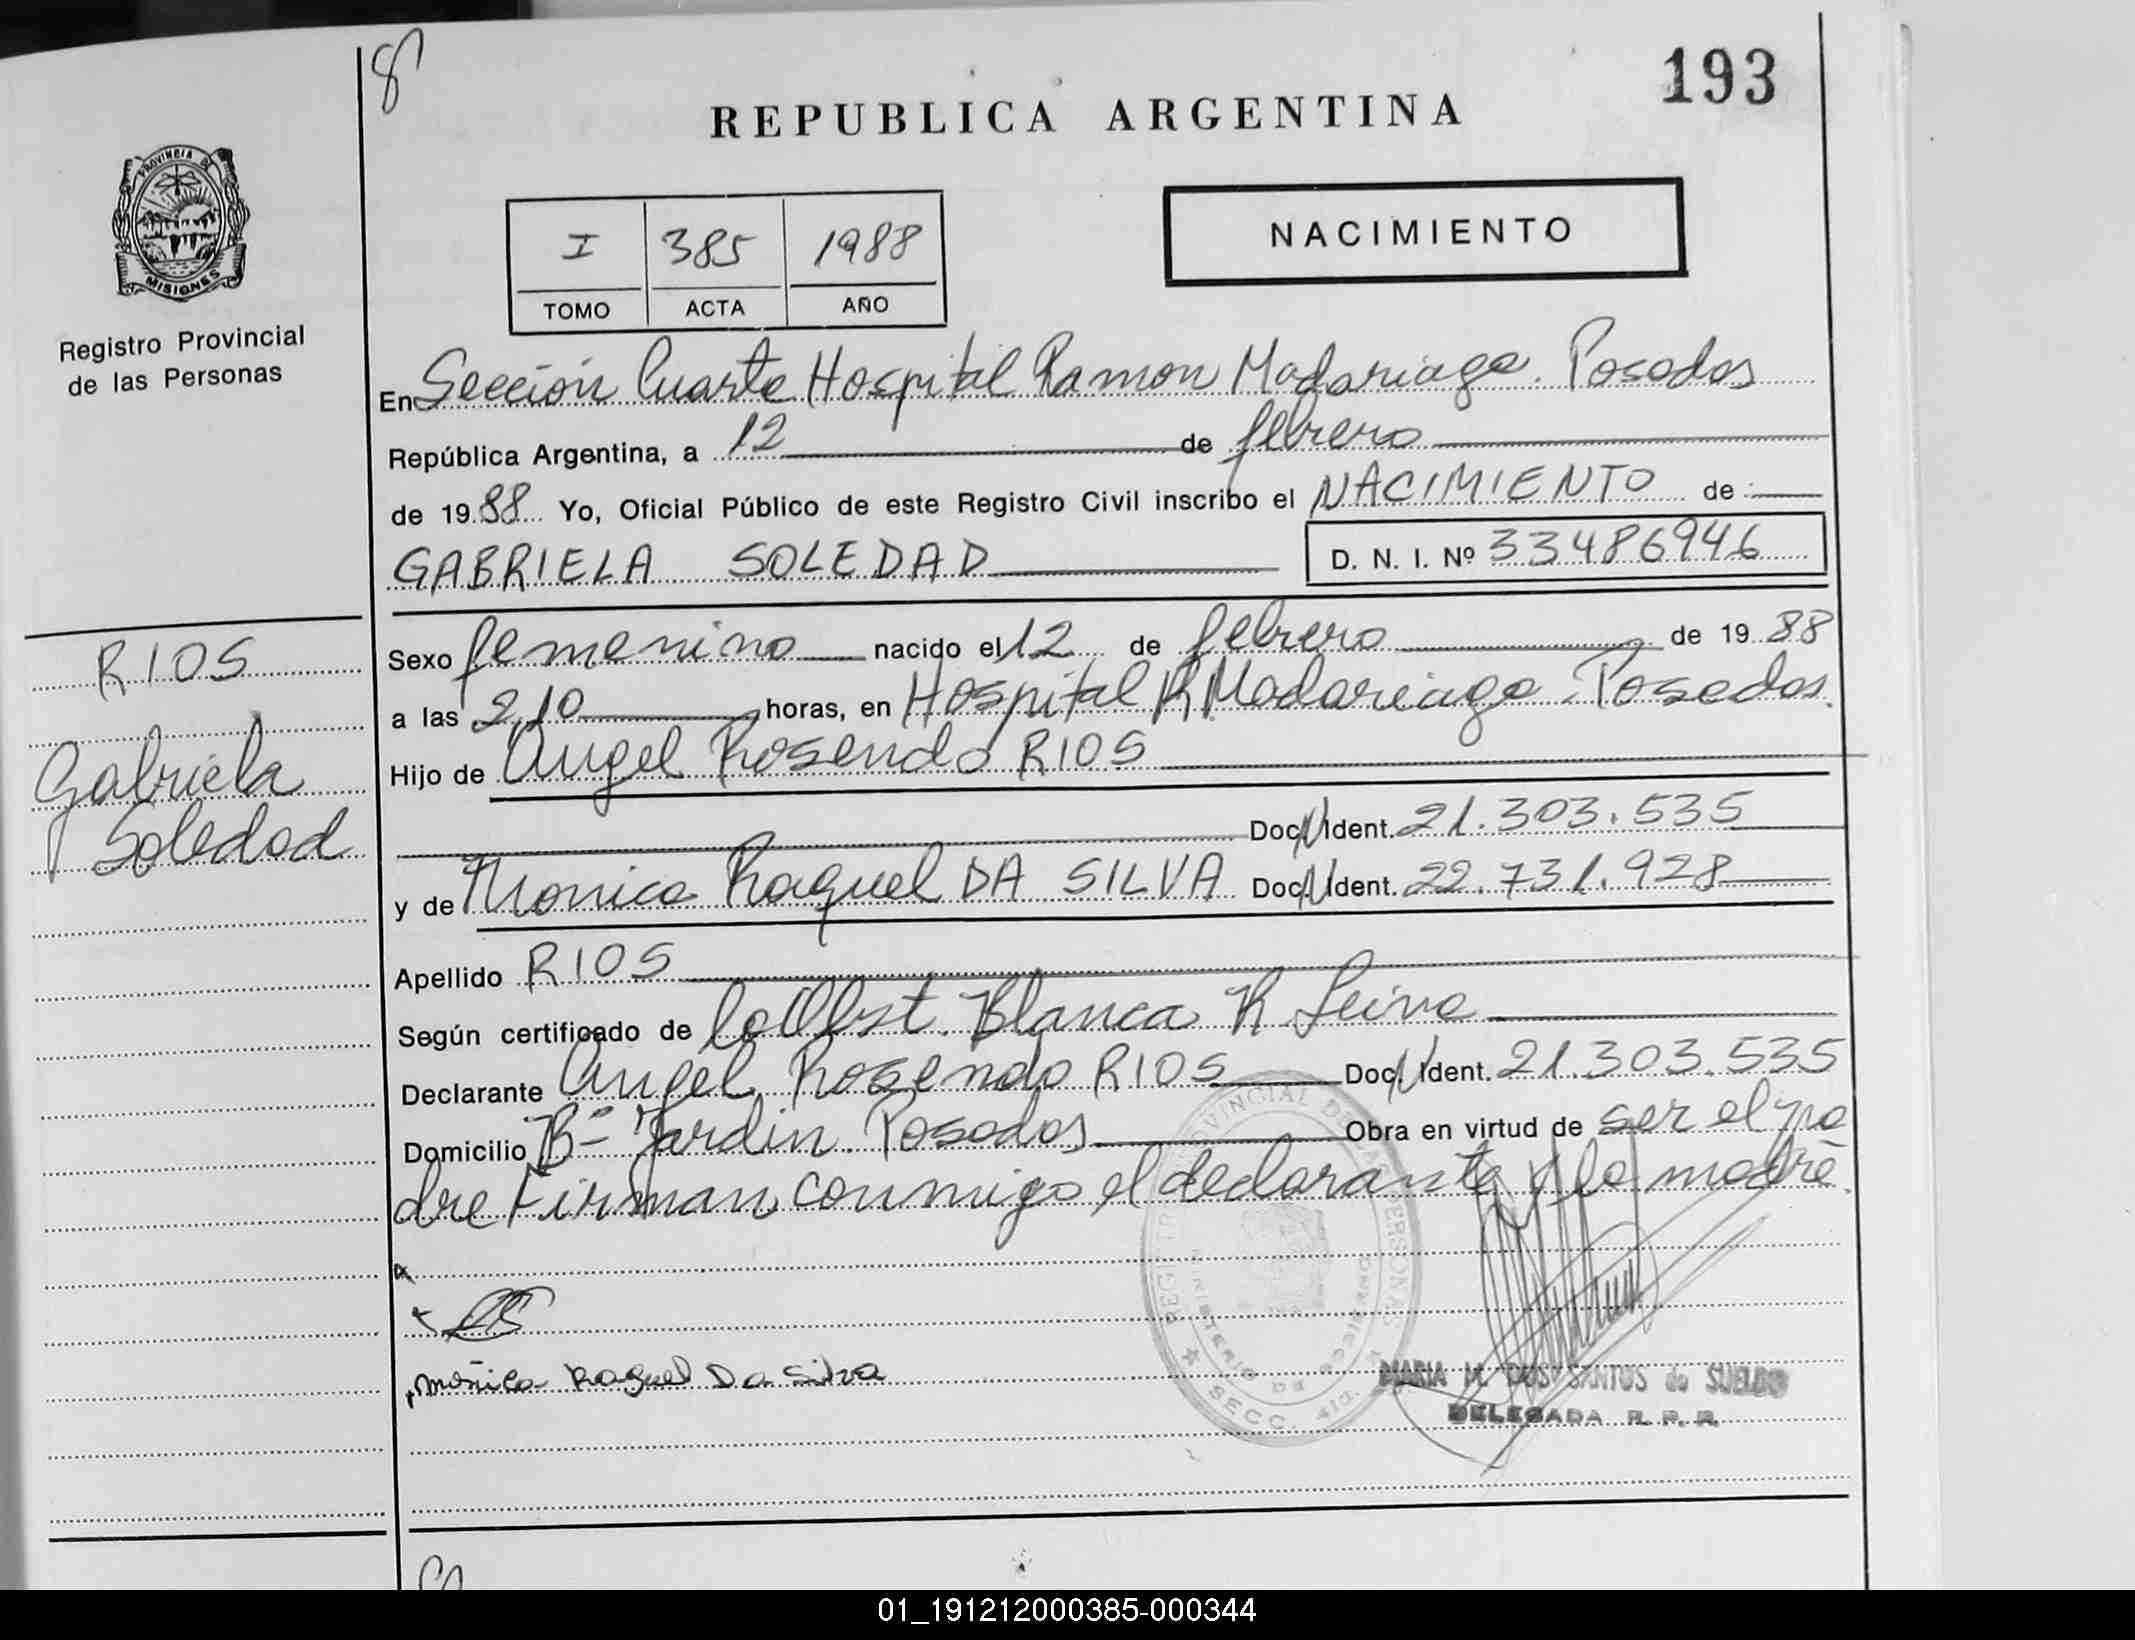 8
193
REPUBLICA ARGENTINA
PROVINCIA DE
MISIONES
Registro Provincial
de las Personas
I 385 1988
TOMO ACTA AÑO
NACIMIENTO
En Sección Cuarta Hospital Ramon Madariaga. Posadas
República Argentina, a 12 de febrero
de 1988 Yo, Oficial Público de este Registro Civil inscribo el NACIMIENTO de
GABRIELA SOLEDAD D. N. I. Nº 33486946
RIOS
Gabriela
Soledad
Sexo femenino nacido el 12 de febrero de 1988
a las 2,10 horas, en Hospital R Madariaga. Posadas.
Hijo de Angel Rosendo RIOS
Doc. N Ident. 21.303.535
y de Monica Raquel DA SILVA Doc. N Ident. 22.731.928
Apellido RIOS
Según certificado de la Obst. Blanca R Leiva
Declarante Angel Rosendo RIOS Doc. N Ident. 21.303.535
Domicilio Bº Jardin. Posadas Obra en virtud de ser el pa
dre Firman conmigo el declarante y la madre.
Mónica Raquel Da Silva
MARIA M. DOS SANTOS de SUELDO
DELEGADA R. P. P.
SECC. 4ta.
01_191212000385-000344